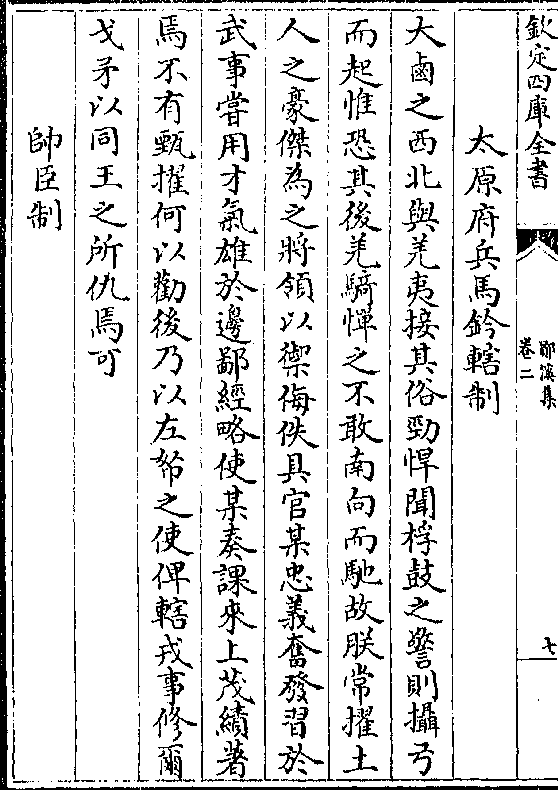 欽定四庫全書
鄖溪集
卷二
七
太原府兵馬鈐轄制
大鹵之西北與羌夷接其俗勁悍聞桴鼓之警則攝弓
而起惟恐其後羌騎憚之不敢南向而馳故朕常擢土
人之豪傑為之將領以禦侮佚具官某忠義奮發習於
武事嘗用才氣雄於邊鄙經略使某奏課來上茂績著
焉不有甄擢何以勸後乃以左帑之使俾轄戎事修爾
戈矛以同王之所仇焉可
帥臣制